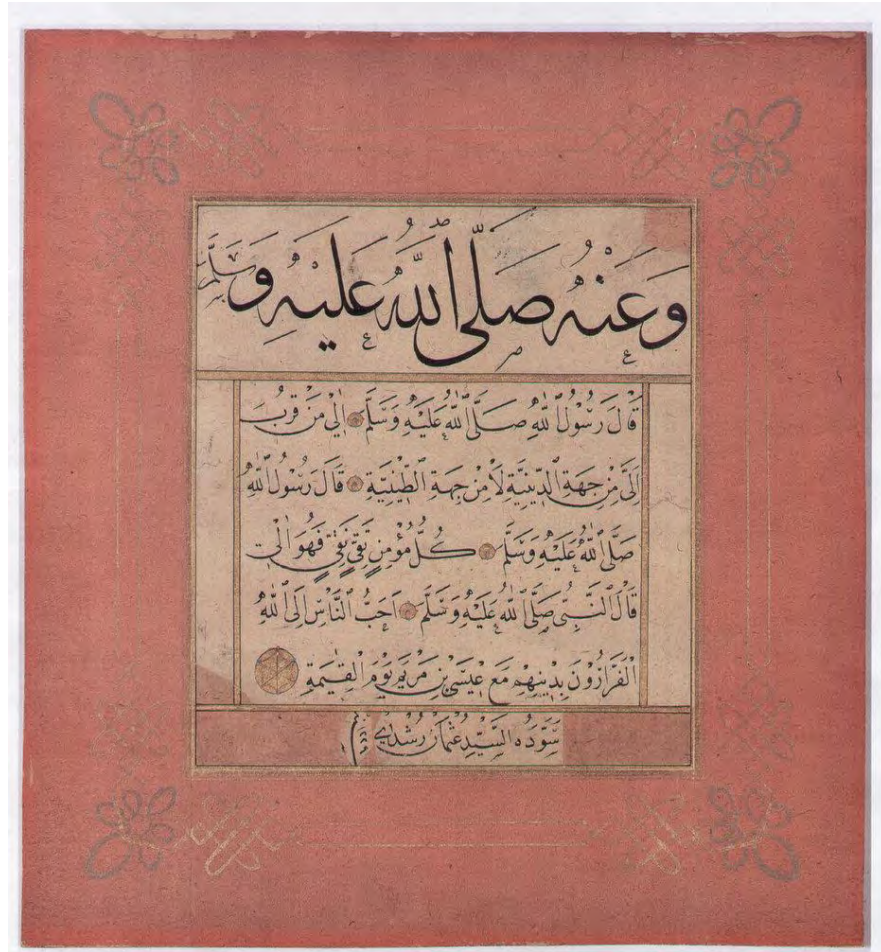 وَعَنْهُ صَلَّى اللّٰهُ عَلَيْهِ وَسَلَّمَ
قَالَ رَسُولُ اللّٰهِ صَلَّى اللّٰهُ عَلَيْهِ وَسَلَّمَ اٰلِي مَنْ قَرُبَ
اِلَىَّ مِنْ جِهَةِ الدِّينِيَّةِ لَا مِنْ جِهَةِ الطِّينِيَّةِ قَالَ رَسُولُ اللّٰهِ
صَلَّى اللّٰهُ عَلَيْهِ وَسَلَّمَ كُلُّ مُؤْمِنٍ تَقِيٍّ نَقِيٍّ فَهُوَ اٰلِي
قَالَ النَّبِىُّ صَلَّى اللّٰهُ عَلَيْهِ وَسَلَّمَ اَحَبُّ النَّاسِ اِلَى اللّٰهِ
الْفَرَّارُونَ بِدِينِهِمْ مَعَ عِيسَى بْنِ مَرْيَمَ يَوْمَ الْقِيٰمَةِ
سَوَّدَهُ السَّيِّدُ عُثْمَانُ رُشْدِي